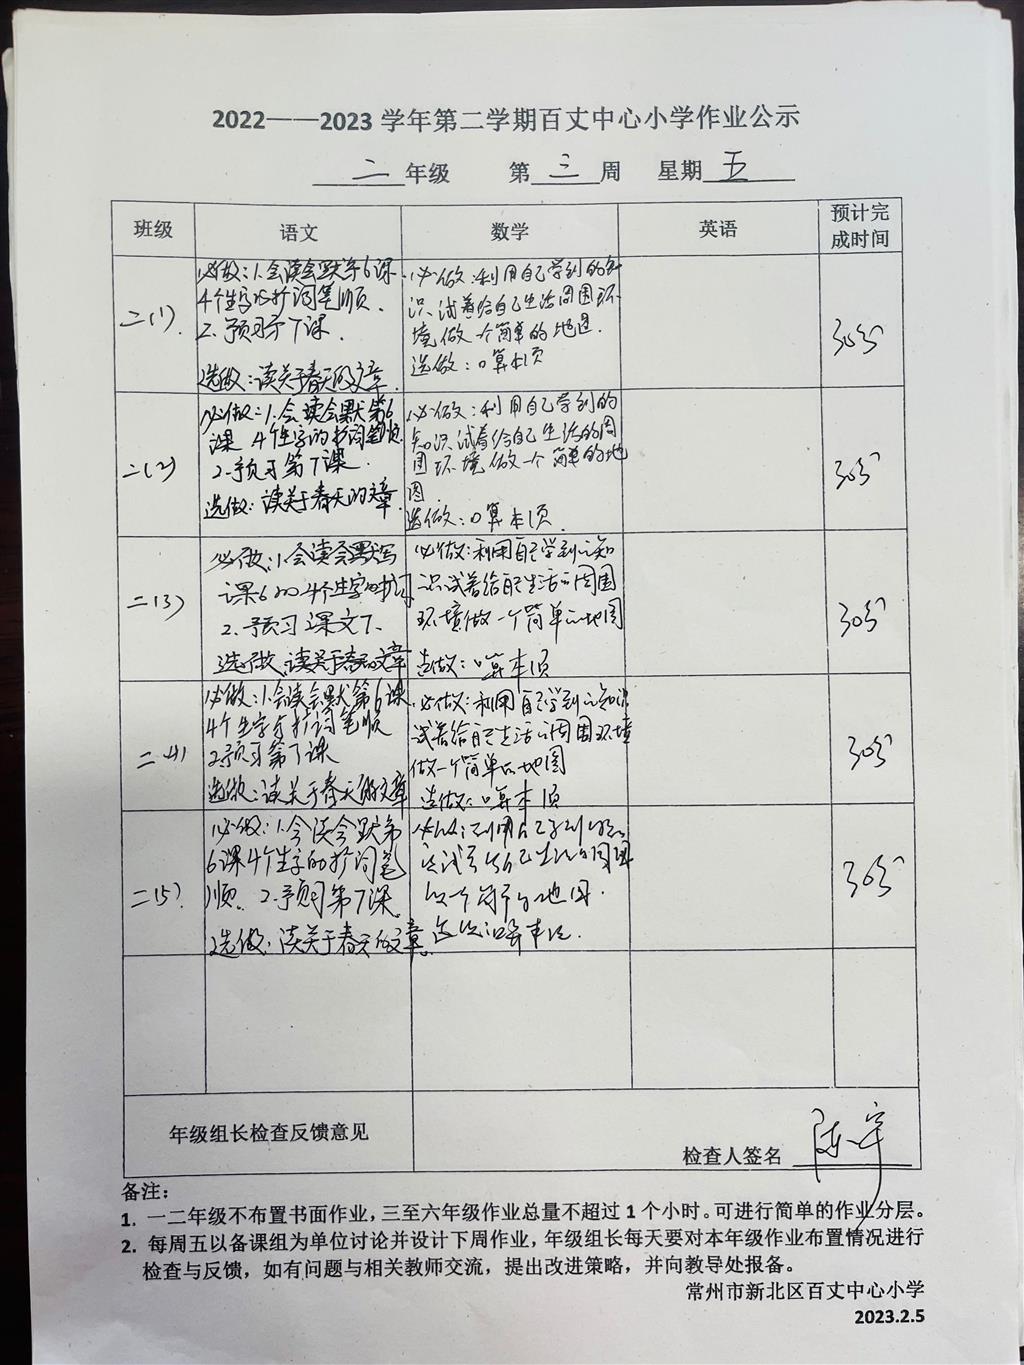 2022——2023 学年第二学期百丈中心小学作业公示
二 年级 第 三 周 星期 五
班级 语文 数学 英语 预计完
成时间
二(1)
必做:1.会读会默写6课
4个生字的扩词笔顺.
2.预习 7课.
选做:读关于春天的文章.
必做:利用自己学到的知
识,试着给自己生活周围环
境做一个简单的地图.
选做:口算本1页
30分
二(2)
必做:1.会读会默第6
课 4个生字的扩词笔顺.
2.预习第7课.
选做:读关于春天的文章
必做:利用自己学到的
知识试着给自己生活的周
围环境做一个简单的地
图.
选做:口算本1页.
30分
二(3)
必做:1.会读会默写
课6的4个生字的扩词
2.预习课文7.
选做:读关于春天的文章
必做:利用自己学到的知
识试着给自己生活的周围
环境做一个简单的地图
选做:口算本1页
30分
二(4)
必做:1.会读会默第6课
4个生字 扩词笔顺
2.预习第7课
选做:读关于春天的文章
必做:利用自己学到的知识
试着给自己生活的周围环境
做一个简单的地图
选做:口算本1页
30分
二(5)
必做:1.会读会默第
6课4个生字的扩词笔
顺. 2.预习第7课.
选做:读关于春天的文章.
必做:利用自己学到的知
识试着给自己生活的周围
做一个简单的地图.
选做:口算本1页.
30分
年级组长检查反馈意见
检查人签名
备注:
1. 一二年级不布置书面作业,三至六年级作业总量不超过 1 个小时。可进行简单的作业分层。
2. 每周五以备课组为单位讨论并设计下周作业,年级组长每天要对本年级作业布置情况进行
检查与反馈,如有问题与相关教师交流,提出改进策略,并向教导处报备。
常州市新北区百丈中心小学
2023.2.5